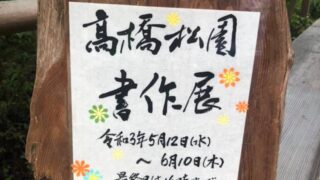 高橋松園
書作展
令和3年5月12日(水)
～6月10日(木)
最終日は